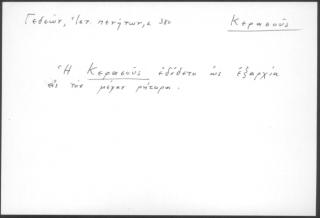 Γεδεών, Ἱστ. πενήτων, σ. 380
Κερασοῦς
Ἡ Κερασοῦς ἐδόθη ὡς ἐξαρχία
εἰς τὸν μέγαν ρήτορα.